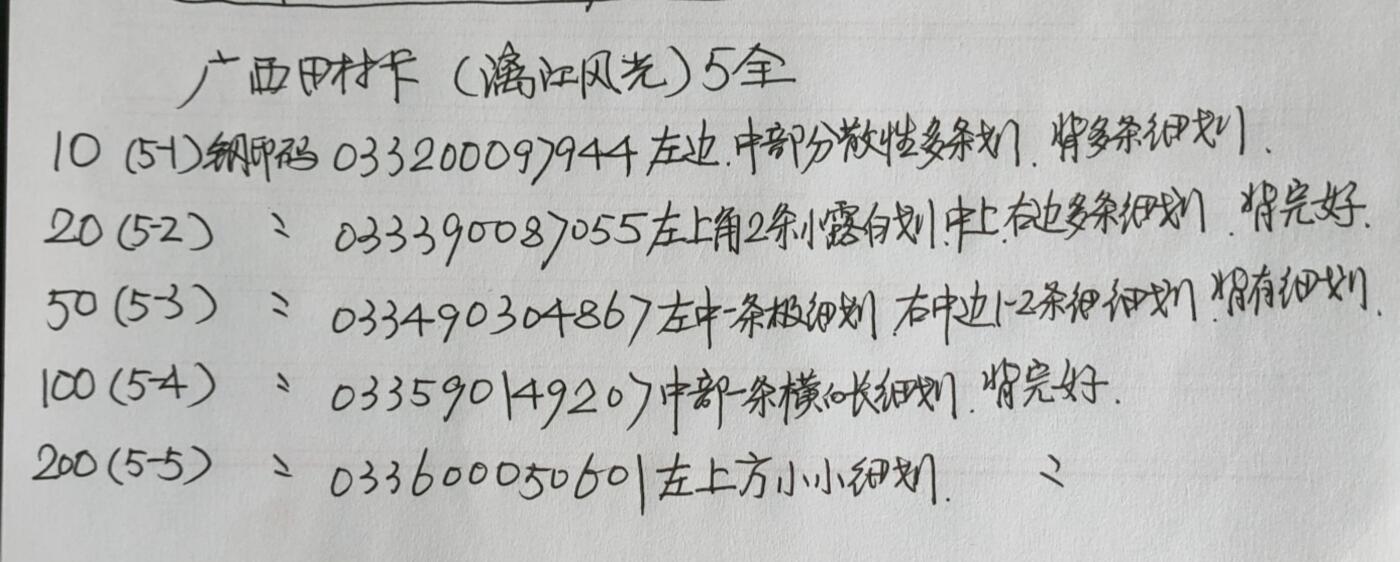 广西田村卡（漓江风光）5全
10 (5-1) 钢印码 033200097944 左边.中部分散性多条划.背多条细划.
20 (5-2) 〃 033390087055 左上角2条小露白划.中上.右边多条细划.背完好.
50 (5-3) 〃 033490304867 左中一条极细划.右中边1-2条细细划.背有细划.
100 (5-4) 〃 033590149207 中部一条横向长细划.背完好.
200 (5-5) 〃 033600050601 左上方小小细划. 〃